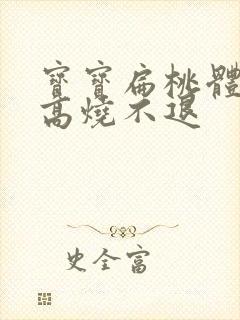 寶寶扁桃體
高燒不退
史全富